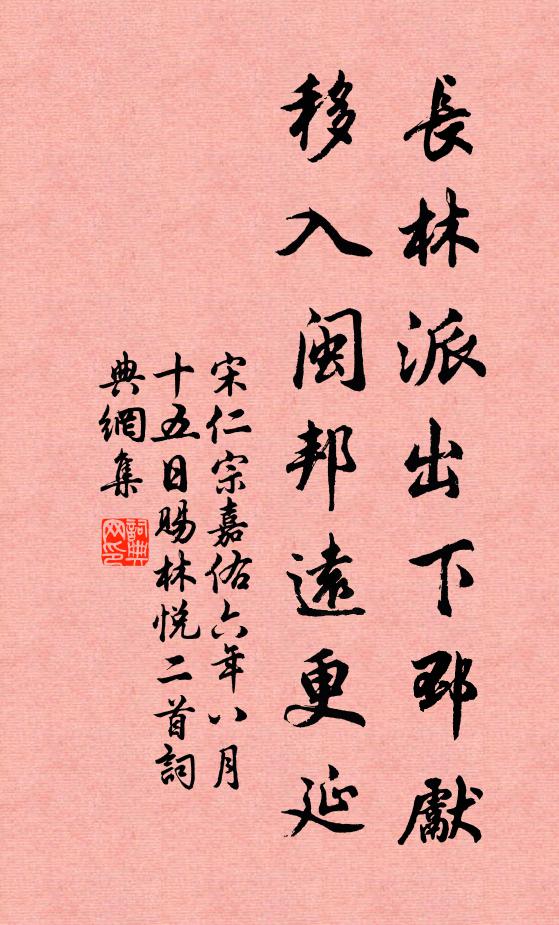 長林派出下邳獻
移入閩邦遠更延
宋仁宗嘉佑六年八月
十五日賜林悅二首詞
典網集
詞典网印